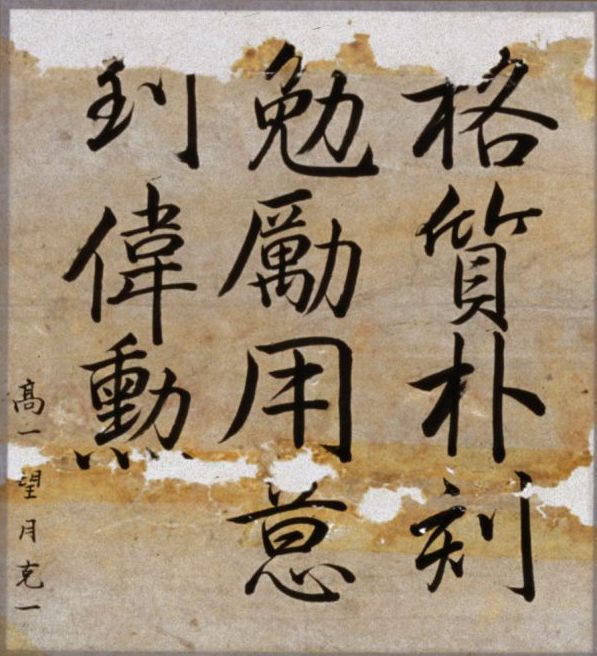 格質朴刻
勉勵用意
到偉勳
高一望月克一